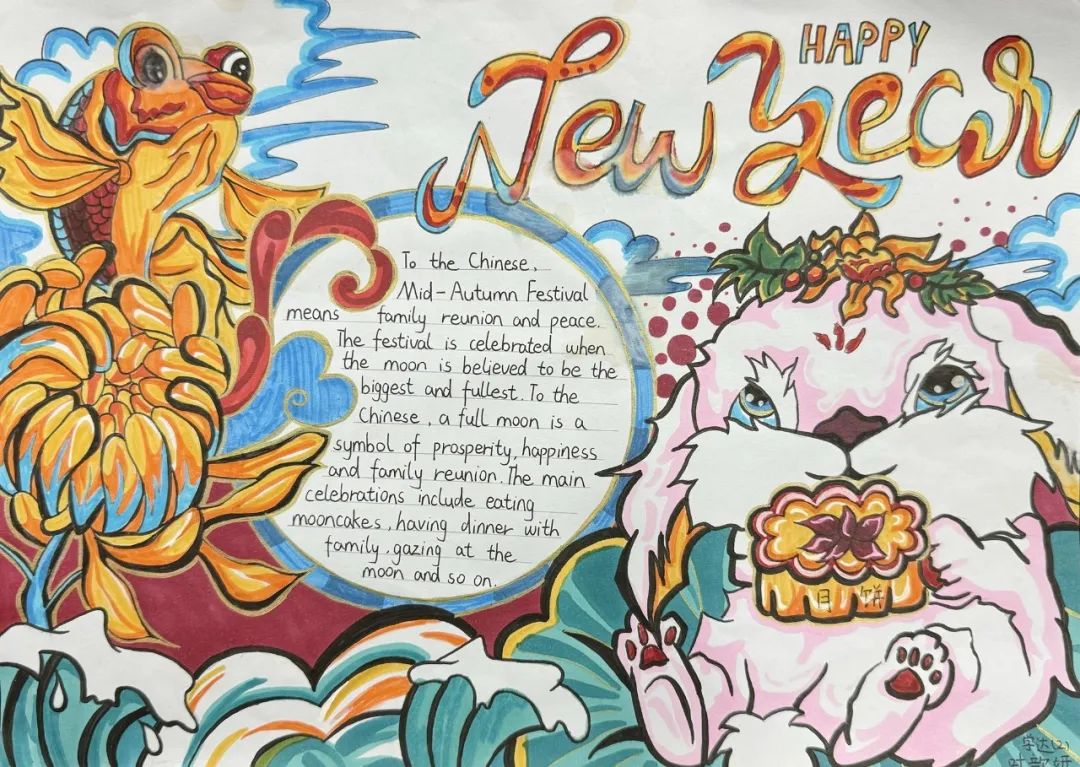 HAPPY
New Year
To the Chinese,
Mid-Autumn Festival
means family reunion and peace.
The festival is celebrated when
the moon is believed to be the
biggest and fullest. To the
Chinese, a full moon is a
symbol of prosperity, happiness
and family reunion. The main
celebrations include eating
mooncakes, having dinner with
family, gazing at the
moon and so on.
月饼
学达(2)